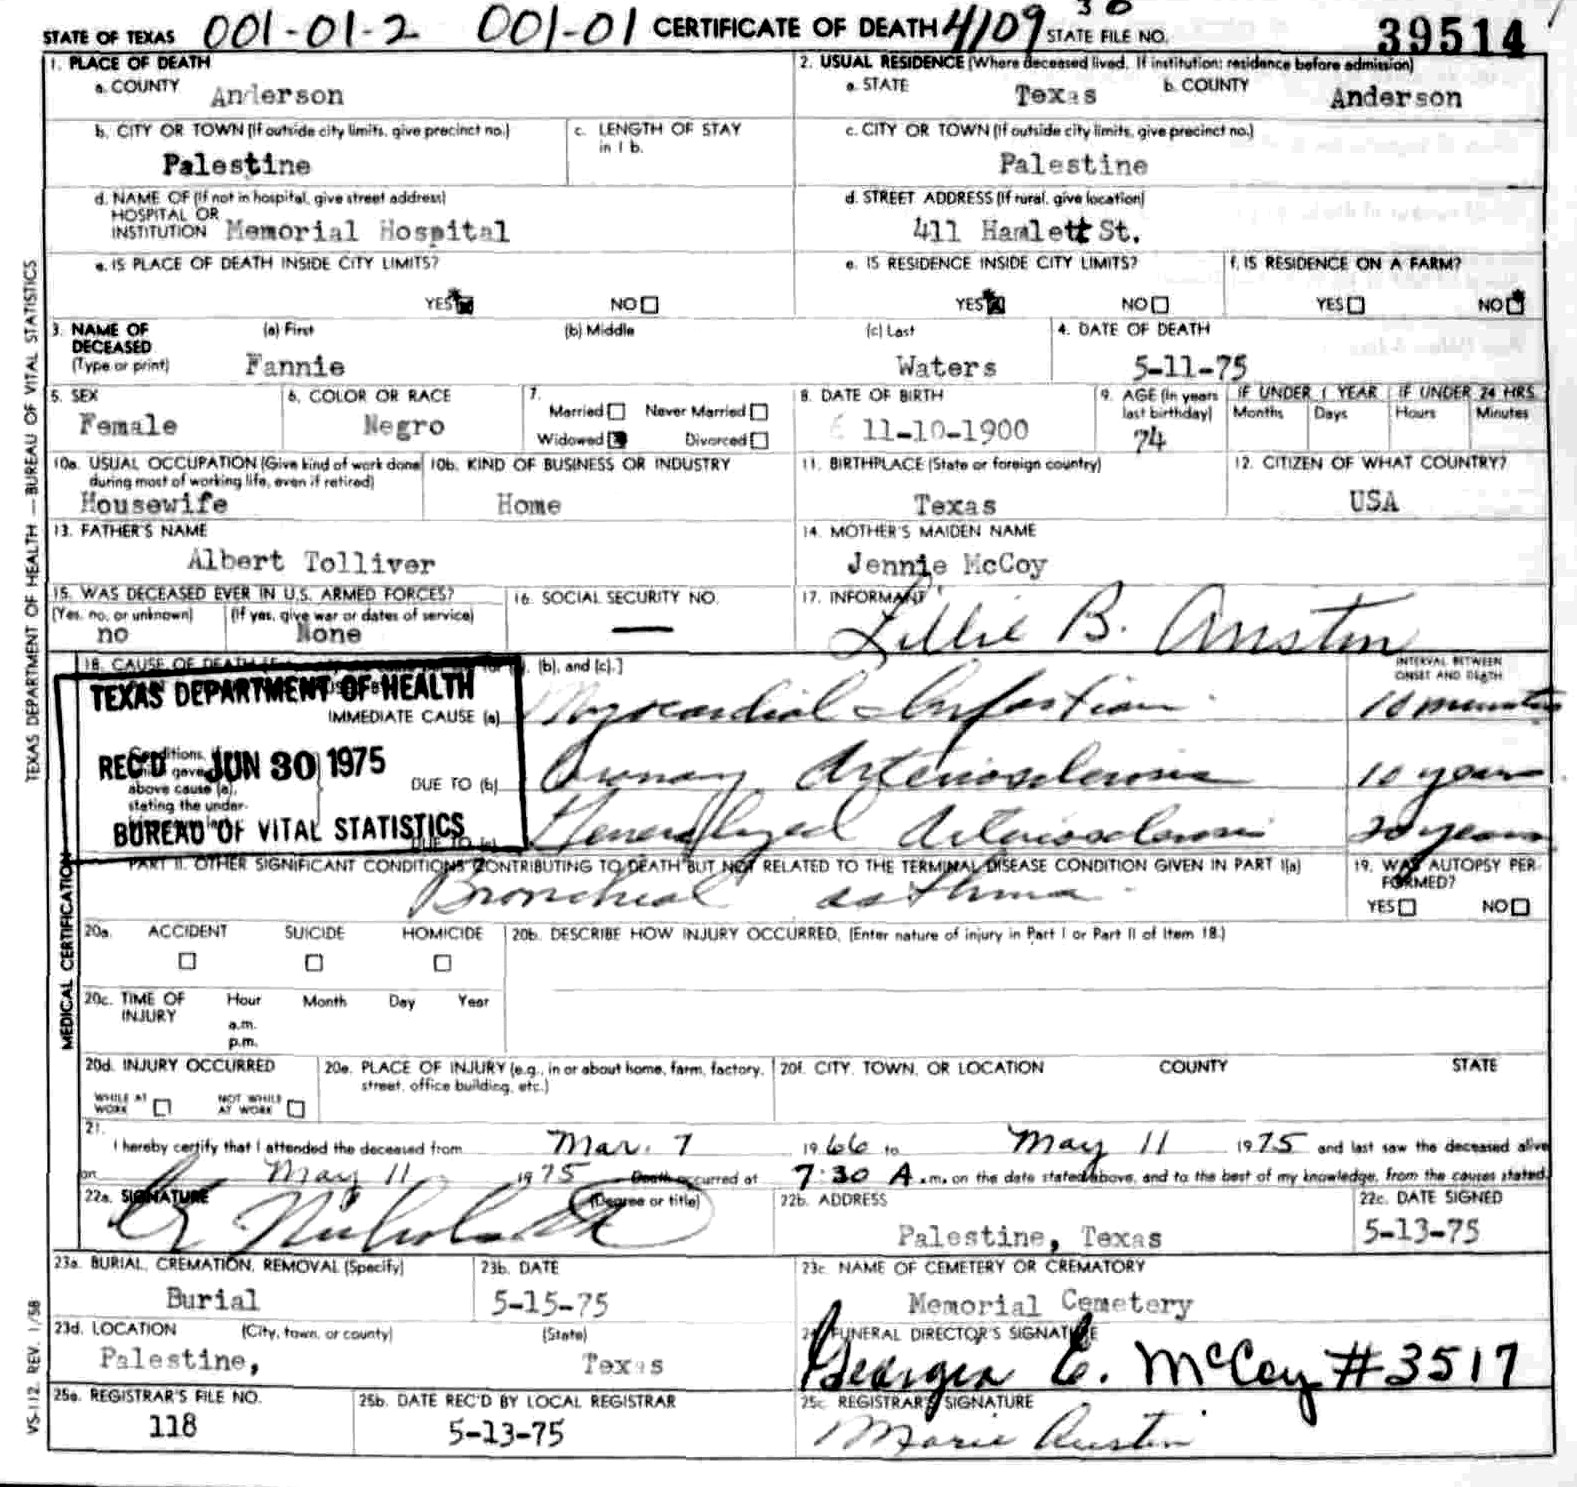 STATE OF TEXAS 001-01-2 001-01 CERTIFICATE OF DEATH 4109 30 STATE FILE NO. 39514
1. PLACE OF DEATH
a. COUNTY Anderson
2. USUAL RESIDENCE (Where deceased lived. If institution: residence before admission)
a. STATE Texas b. COUNTY Anderson
b. CITY OR TOWN (If outside city limits, give precinct no.) Palestine
c. LENGTH OF STAY in 1 b.
c. CITY OR TOWN (If outside city limits, give precinct no.) Palestine
d. NAME OF (If not in hospital, give street address)
HOSPITAL OR
INSTITUTION Memorial Hospital
d. STREET ADDRESS (If rural, give location)
411 Hamlett St.
e. IS PLACE OF DEATH INSIDE CITY LIMITS?
YES NO
e. IS RESIDENCE INSIDE CITY LIMITS?
YES NO
f. IS RESIDENCE ON A FARM?
YES NO
3. NAME OF DECEASED (Type or print)
(a) First (b) Middle (c) Last
Fannie Waters
4. DATE OF DEATH
5-11-75
5. SEX
Female
6. COLOR OR RACE
Negro
7.
Married Never Married
Widowed Divorced
8. DATE OF BIRTH
11-10-1900
9. AGE (In years last birthday)
74
IF UNDER 1 YEAR IF UNDER 24 HRS.
Months Days Hours Minutes
10a. USUAL OCCUPATION (Give kind of work done during most of working life, even if retired)
Housewife
10b. KIND OF BUSINESS OR INDUSTRY
Home
11. BIRTHPLACE (State or foreign country)
Texas
12. CITIZEN OF WHAT COUNTRY?
USA
13. FATHER'S NAME
Albert Tolliver
14. MOTHER'S MAIDEN NAME
Jennie McCoy
15. WAS DECEASED EVER IN U.S. ARMED FORCES?
(Yes, no, or unknown) (If yes, give war or dates of service)
no None
16. SOCIAL SECURITY NO.
—
17. INFORMANT
Lillie B. Austin
18. CAUSE OF DEATH (b), and (c).]
INTERVAL BETWEEN ONSET AND DEATH
TEXAS DEPARTMENT OF HEALTH
REC'D JUN 30 1975
BUREAU OF VITAL STATISTICS
Conditions
above cause (a),
stating the under-
IMMEDIATE CAUSE (a) Myocardial Infarction 10 minutes
DUE TO (b) Coronary Arteriosclerosis 10 years
DUE TO (c) Generalized Arteriosclerosis 20 years
PART II. OTHER SIGNIFICANT CONDITIONS CONTRIBUTING TO DEATH BUT NOT RELATED TO THE TERMINAL DISEASE CONDITION GIVEN IN PART I(a)
Bronchial asthma
19. WAS AUTOPSY PERFORMED?
YES NO
20a. ACCIDENT SUICIDE HOMICIDE
20b. DESCRIBE HOW INJURY OCCURRED. (Enter nature of injury in Part I or Part II of Item 18.)
20c. TIME OF INJURY
Hour Month Day Year
a.m.
p.m.
20d. INJURY OCCURRED
WHILE AT WORK NOT WHILE AT WORK
20e. PLACE OF INJURY (e.g., in or about home, farm, factory, street, office building, etc.)
20f. CITY, TOWN, OR LOCATION COUNTY STATE
21.
I hereby certify that I attended the deceased from Mar. 7 1966 to May 11 1975 and last saw the deceased alive
on May 11 1975 Death occurred at 7:30 A.m. on the date stated above, and to the best of my knowledge, from the causes stated.
22a. SIGNATURE (Degree or title)
22b. ADDRESS
Palestine, Texas
22c. DATE SIGNED
5-13-75
23a. BURIAL, CREMATION, REMOVAL (Specify)
Burial
23b. DATE
5-15-75
23c. NAME OF CEMETERY OR CREMATORY
Memorial Cemetery
23d. LOCATION (City, town, or county) (State)
Palestine, Texas
24. FUNERAL DIRECTOR'S SIGNATURE
Georgia E. McCoy #3517
25a. REGISTRAR'S FILE NO.
118
25b. DATE REC'D BY LOCAL REGISTRAR
5-13-75
25c. REGISTRAR'S SIGNATURE
Marie Austin
TEXAS DEPARTMENT OF HEALTH — BUREAU OF VITAL STATISTICS
MEDICAL CERTIFICATION
VS-112, REV. 1/58